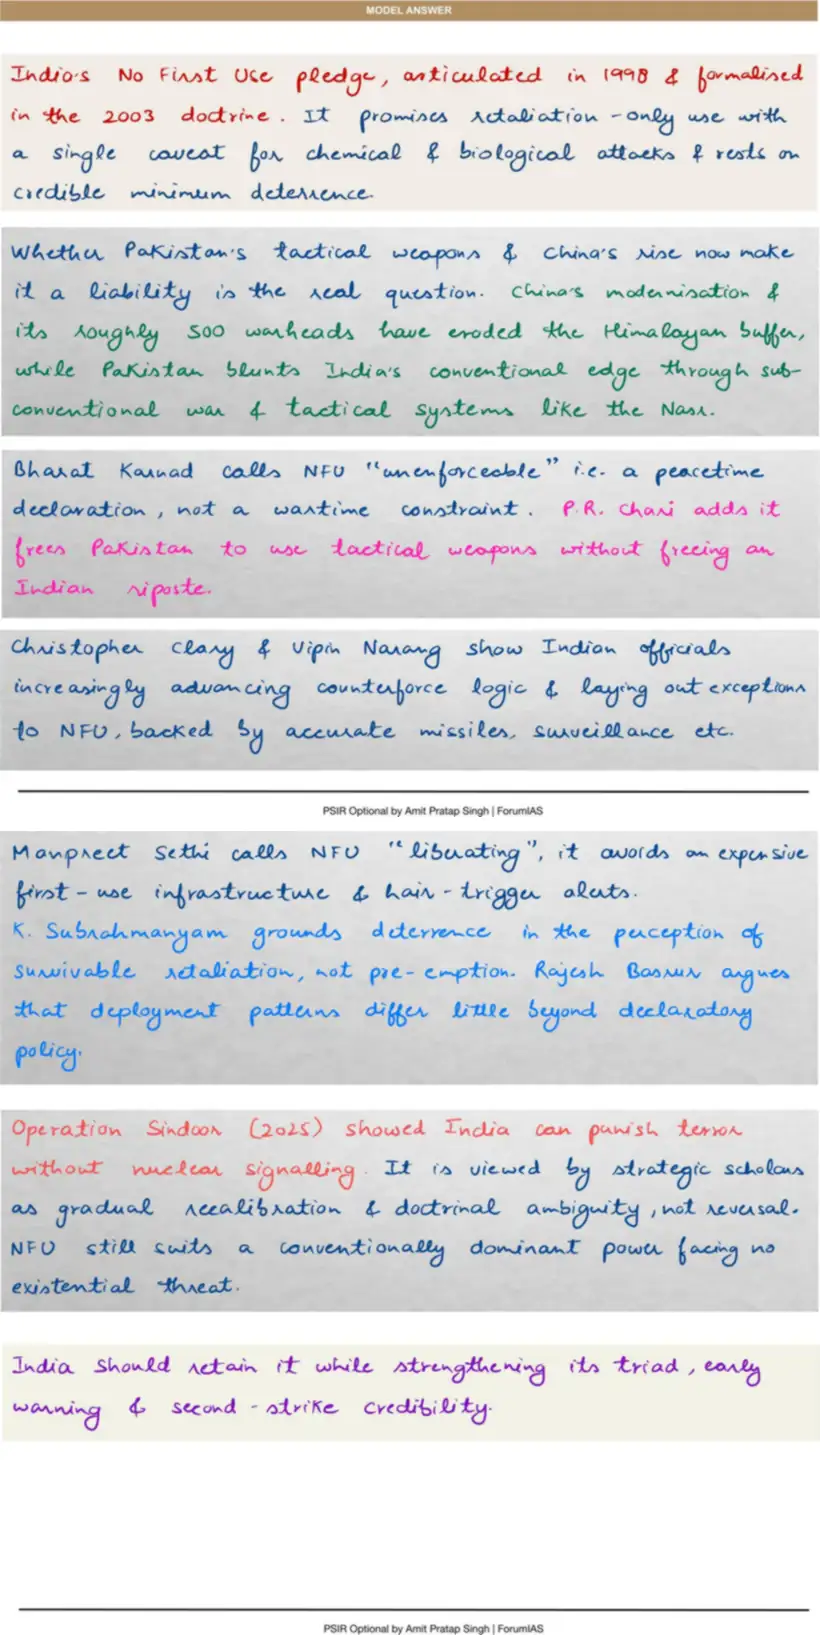 MODEL ANSWER
India's No First Use pledge, articulated in 1998 & formalised
in the 2003 doctrine. It promises retaliation-only use with
a single caveat for chemical & biological attacks & rests on
credible minimum deterrence.
Whether Pakistan's tactical weapons & China's rise now make
it a liability is the real question. China's modernisation &
its roughly 500 warheads have eroded the Himalayan buffer,
while Pakistan blunts India's conventional edge through sub-
conventional war & tactical systems like the Nasr.
Bharat Karnad calls NFU "unenforceable" i.e. a peacetime
declaration, not a wartime constraint. P.R. Chari adds it
frees Pakistan to use tactical weapons without freeing an
Indian riposte.
Christopher Clary & Vipin Narang show Indian officials
increasingly advancing counterforce logic & laying out exceptions
to NFU, backed by accurate missiles, surveillance etc.
PSIR Optional by Amit Pratap Singh | ForumIAS
Manpreet Sethi calls NFU "liberating", it avoids an expensive
first-use infrastructure & hair-trigger alerts.
K. Subrahmanyam grounds deterrence in the perception of
survivable retaliation, not pre-emption. Rajesh Basrur argues
that deployment patterns differ little beyond declaratory
policy.
Operation Sindoor (2025) showed India can punish terror
without nuclear signalling. It is viewed by strategic scholars
as gradual recalibration & doctrinal ambiguity, not reversal.
NFU still suits a conventionally dominant power facing no
existential threat.
India should retain it while strengthening its triad, early
warning & second-strike credibility.
PSIR Optional by Amit Pratap Singh | ForumIAS